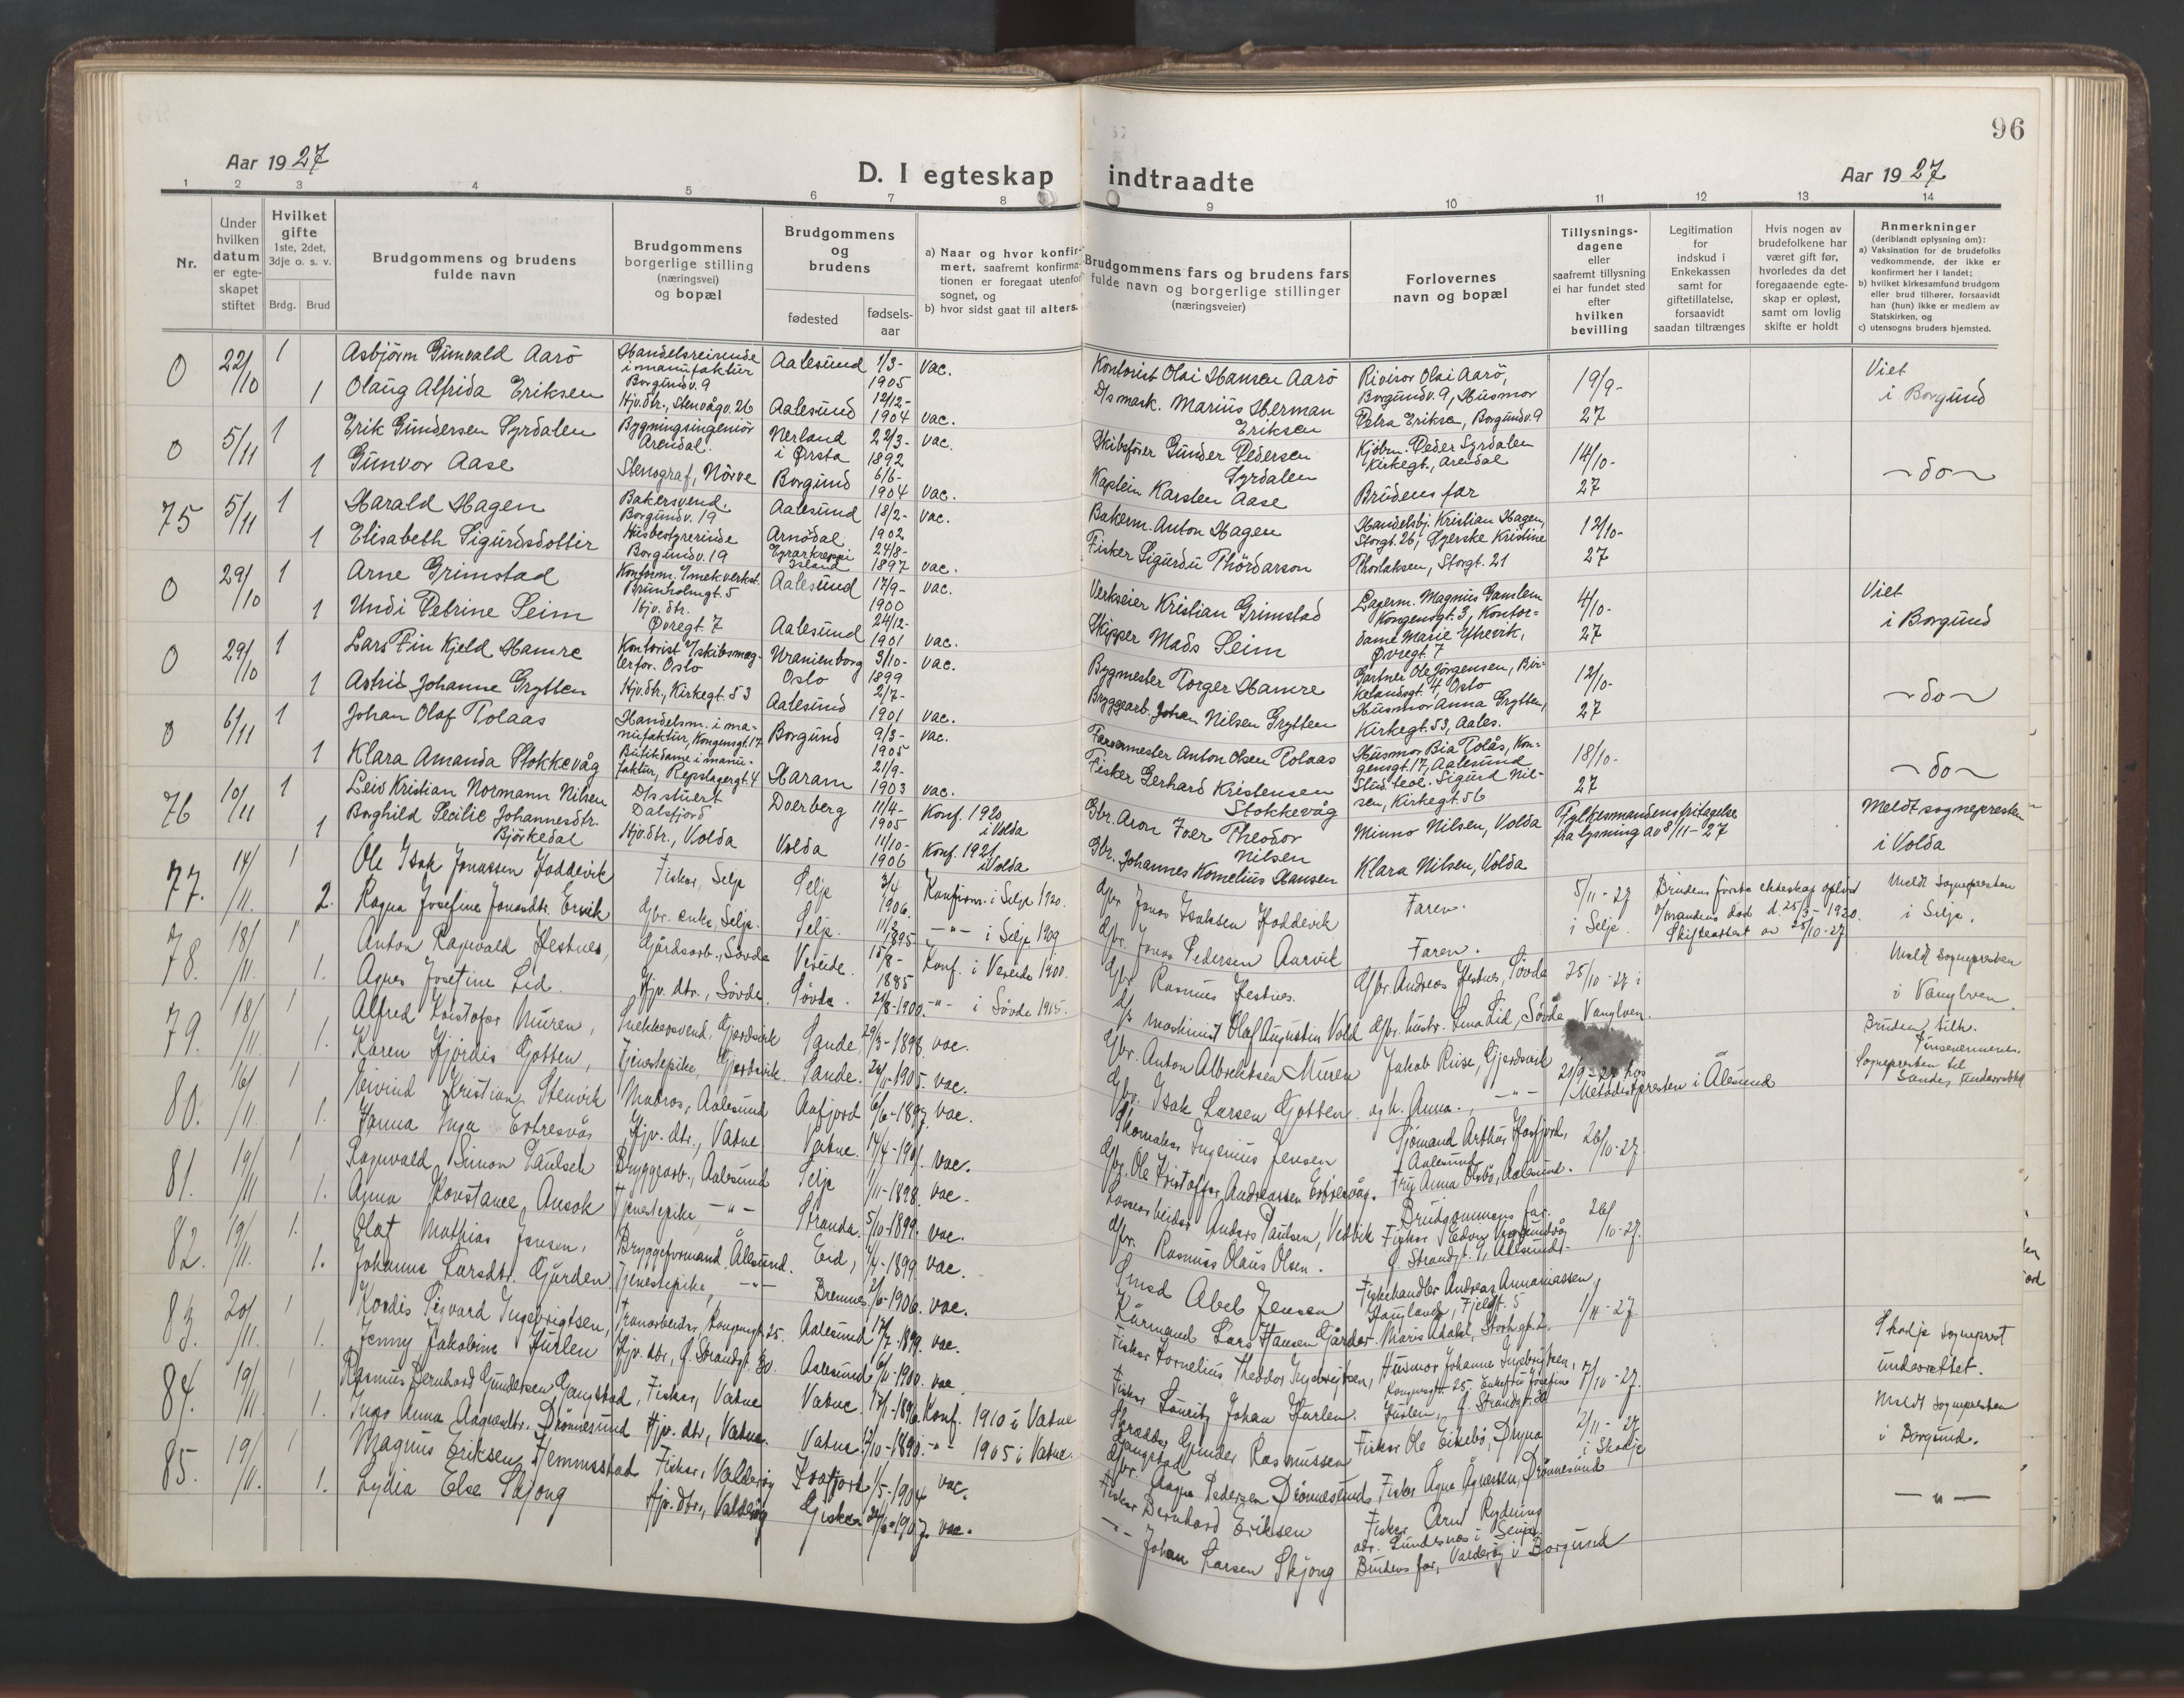 96
Aar 1927
D. I egteskap indtraadte
Aar 1927
1 2 3 4 5 6 7 8 9 10 11 12 13 14
Nr.
Under hvilken datum er egte-skapet stiftet
Hvilket gifte
1ste, 2det, 3dje o. s. v.
Brdg. Brud
Brudgommens og brudens fulde navn
Brudgommens borgerlige stilling (næringsvei) og bopæl
Brudgommens og brudens
fødested
fødsels-aar
a) Naar og hvor konfir-mert, saafremt konfirma-tionen er foregaat utenfor sognet, og
b) hvor sidst gaat til alters.
Brudgommens fars og brudens fars fulde navn og borgerlige stillinger (næringsveier)
Forlovernes navn og bopæl
Tillysnings-dagene eller saafremt tillysning ei har fundet sted efter hvilken bevilling
Legitimation for indskud i Enkekassen samt for giftetillatelse, forsaavidt saadan tiltrænges
Hvis nogen av brudefolkene har været gift før, hvorledes da det foregaaende egte-skap er opløst, samt om lovlig skifte er holdt
Anmerkninger
(deriblandt oplysning om):
a) Vaksination for de brudefolks vedkommende, der ikke er konfirmert her i landet;
b) hvilket kirkesamfund brudgom eller brud tilhører, forsaavidt han (hun) ikke er medlem av Statskirken, og
c) utensogns bruders hjemsted.
0 22/10 1 Asbjörn Gunvald Aarö Handelsreisende i manufaktur Borgundv. 9 Aalesund 1/3-1905 vac. Kontorist Olai Hansen Aarö Rivisor Olai Aarö, Borgundv. 9, Husmor 19/9- Viet
1 Olaug Alfrida Eriksen Hjv.dtr., Stenvågv. 26 Aalesund 12/12-1904 vac. D/s mask. Marius Herman Eriksen Petra Eriksen, Borgundv. 9 27 i Borgund
0 5/11 1 Erik Gundersen Syrdalen Bygningsingeniör Arendal. Nerland i Ørsta 22/3-1892 vac. Skibsförer Gunder Pedersen Syrdalen Kjöbm. Peder Syrdalen Kirkegt., Arendal 14/10-
1 Gunvor Aase Stenograf, Nörve Borgund 6/6-1904 vac. Kaptein Karsten Aase Brudens far 27 -do-
75 5/11 1 Harald Hagen Bakersvend. Borgundv. 19 Aalesund 18/2-1902 vac. Bakerm. Anton Hagen Handelsbj. Kristian Hagen, Storgt. 26, 12/10-
1 Elisabeth Sigurdsdottir Husbestyrerinde Borgundv. 19 Arnödal Island 24/8-1897 vac. Fisker Sigurdu Thördarson Kristine Thorlaksen, Storgt. 21 27
0 29/10 1 Arne Grimstad Brunholmgt. 5 Aalesund 17/9-1900 vac. Verkseier Kristian Grimstad Lagerm. Magnus Gamlem Kongensgt. 3, Kontor- 4/10- Viet
1 Undi Petrine Seim Hjv. dtr. Øvregt. 7 Aalesund 24/12-1901 vac. Skipper Mads Seim dame Marie Ytrevik, Øvregt. 7 27 i Borgund
0 29/10 1 Lars Fin Kjeld Hamre Kontorist v/skibsmæg-lerfor. Oslo Uranienborg Oslo 3/10-1899 vac. Bygmester Torger Hamre Gartner Ole Jörgensen, Bir-kelandsgt. 4, Oslo 12/10-
1 Astrid Johanne Grytten Hjv.dtr., Kirkegt. 53 Aalesund 2/7-1901 vac. Bryggearb. Johan Nilsen Grytten Husmor Anna Grytten, Kirkegt. 53, Aales. 27 -do-
0 6/11 1 Johan Olaf Tolaas Handelsm. i ma-nufaktur, Kongensgt. 17 Borgund 9/3-1905 vac. Anton Olsen Tolaas Husmor Bia Tolås, Kon-gensgt. 17, Aalesund 18/10-
1 Klara Amanda Stokkevåg Butikdame i manu-faktur, Repslagergt. 4 Haram 21/9-1903 vac. Fisker Gerhard Kristensen Stokkevåg Stud. teol. Sigurd Nil-sen, Kirkegt. 56 27 -do-
76 10/11 1 Leiv Kristian Normann Nilsen D/s stuert Dalsfjord Doerberg 11/4-1905 Konf. 1920 i Volda Gbr. Aron Iver Theodor Nilsen Minno Nilsen, Volda Fylkesmandens fritagelse fra lysning av 8/11-27 Meldt sognepresten
1 Borghild Cecilie Johannesdtr. Björkedal Hjv.dtr., Volda Volda 11/10-1906 Konf. 1921 i Volda Gbr. Johannes Kornelius Hansen Klara Nilsen, Volda i Volda
77. 14/11. 1 Ole Isak Jonassen Hoddevik Fisker, Selje Selje 3/4 1906. Konfirm. i Selje 1920. Gbr. Jonas Isaksen Hoddevik Faren. 5/11-27 Brudens første ekteskap opløst Meldt Sognepresten
2. Ragna Josefine Jonasdtr. Ervik Gbr. enke, Selje. Selje. 1895 -"- i Selje 1909 Gbr. Jonas Pedersen Aarvik Faren. i Selje v/mandens død d. 25/3-1920. Skifteattest av 28/10-27 i Selje.
78. 18/11. 1 Anton Ragnvald Hestnes, Gårdsarb., Søvde Vereide. 15/8-1885 Konf. i Vereide 1900. Gbr. Rasmus Hestnes. Gbr. Andreas Hestnes, Søvde 25/10-27 i Meldt Sognepresten
1. Agnes Josefine Lid. Hjv. dtr., Søvde. Søvde. 21/8-1900. -"- i Søvde 1915. D/s maskinist Olaf Augustin Vold Gbr. hustr. Lina Lid, Søvde Vanylven. i Vanylven.
79. 18/11. 1 Alfred Kristofer Muren, Snekkersvend, Gjerdsvik Sande 29/3-1898. vac. Gbr. Anton Albrektsen Muren Jakob Ruse, Gjerdsvik 21/9-27 hos Bruden tilh. Pinsevennene.
1. Karen Hjördis Gjotten, Tjenestepike, Gjerdsvik. Sande. 1905. vac. Gbr. Isak Larsen Gjotten og h. Anna., -"- Metodistpresten i Ålesund Sognepresten til Sandes underrettet
80. 16/11. 1 Eivind Kristian Stenvik Matros, Aalesund Aafjord 6/6-1897. vac. Skomaker Ingenius Jensen Sjömand Arthur Hoxfjord, Aalesund 26/10-27.
1. Janna Inga Estresvåg Hjv. dtr., Vatne Vatne. 14/4-1901. vac. Gbr. Ole Kristoffer Andreassen Estresvåg. Fru Anna Olsbö, Aalesund.
81. 19/11 1 Ragnvald Simon Paulsen Bryggearb., Aalesund Selje 1/11-1898. vac. Anders Paulsen, Vedvik Brudgommens far. 26/10-27.
1. Anna Konstance Ansok Tjenestepike, -"- Stranda. 5/10-1899. vac. Gbr. Rasmus Olaus Olsen. Fisker
82. 19/11. 1. Olaf Mathias Jensen, Bryggeformand, Ålesund. Eid, 1/4-1899 vac. Smed Abel Jensen Fiskehandler Andreas Annaniassen Haugland, Fjeldt. 5 1/11-27.
1. Johanne Larsdtr. Gjærden Tjenestepike, -"- Bremnes 2/6-1906. vac. Kårmand Lars Hansen Gjærder. Maria Adahl, Storhgt. 2.
83. 20/11. 1 Kordis Sigvard Ingebrigtsen, Tranarbeider, Kongensgt. 25. Aalesund 17/7-1899. vac. Fisker Kornelius Theodor Ingebrigtsen, Husmor Johanne Ingebrigtsen, Kongensgt. 25. 7/10-27. Skodje Sogneprest
1. Jenny Jakobine Hurlen Hjv. dtr., G. Strandgt. 20. Aalesund 6/11-1900. vac. Fisker Lauritz Johan Hurlen. Enkefru Josefine Hurlen, G. Strandgt. 20 underrettet.
84. 19/11. 1 Rasmus Bernhard Gundersen Gangstad, Fisker, Vatne Vatne. 17/1-1896. Konf. 1910 i Vatne Skrædder Gunder Rasmussen Gangstad Fisker Ole Eikebö, Dryna 2/11-27 Meldt Sognepresten
1. Inga Anna Aagesdtr. Drönnesund Hjv. dtr., Vatne. Vatne 12/10-1890. -"- 1905 i Vatne. Gbr. Aage Pedersen Drönnesund, Fisker Åge Ågesen, Drönnesund i Skodje i Borgund.
85. 19/11. 1 Magnus Eriksen Hemmestad Fisker, Valderøy Ibbestad 1/5-1904 vac. Fisker Bernhard Eriksen Fisker Arnt Rydning adr. Lundesnes i Senja.
1. Lydia Else Skjong Hjv. dtr., Valderøy Giske 24/6-1907. vac. -"- Johan Larsen Skjong Brudens far, Valderøy i Borgund -"-